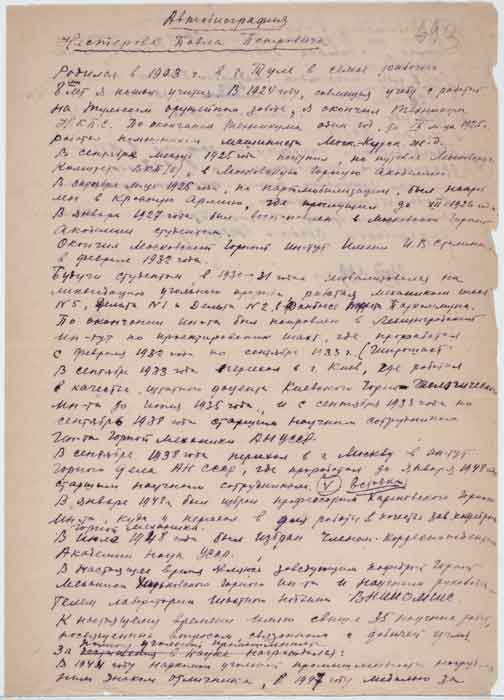 Автобиография
Нестерова Павла Петровича
Родился в 1903 г. в г. Туле в семье рабочего
8 лет я начал учиться. В 1924 году, совмещая учебу с работой
на Тульском оружейном заводе, я окончил Техникум
Н.К.П.С. По окончании Техникума один год, до IX м-ца 1925г.
работал помощником машиниста Моск-Курск. ж-д.
В сентябре месяце 1925 года поступил, по путевке Московского
Комитета ВКП(б), в Московскую Горную Академию.
В октябре м-це 1925 года, по партмобилизации, был направлен
в Красную Армию, где прослужил до XII-1926 г.
В январе 1927 года был восстановлен в Московской Горной
Академии студентом.
Окончил Московский Горный Ин-тут имени И.В. Сталина
в феврале 1932 года.
Будучи студентом в 1930-31 годах мобилизовался на
ликвидацию угольного прорыва, работал механиком шахт
№5, Дельта №1 и Дельта №2, Донбасс
По окончании Ин-та был направлен в Ленинградский
ин-тут по проектированию шахт, где проработал
с февраля 1932 года по сентябрь 1933 г. (Гипрошахт
В сентябре 1933 года переехал в г. Киев, где работал
в качестве штатного доцента Киевского Горно-Геологического
ин-та до июня 1935 года, и с сентября 1933 года по
сентябрь 1938 года старшим научным сотрудником
Ин-та Горной Механики АН УССР.
В сентябре 1938 года переехал в г. Москву в Ин-тут
Горного дела АН СССР, где проработал до января 1948 г.
старшим научным сотрудником. (V) Вставка
В январе 1948г. был избран профессором Харьковского Горного
Ин-та, куда и переехал для работы в качестве зав. кафедрой
Горной механики.
В июле 1948 года был избран Членом-Корреспондентом
Академии Наук УССР.
В настоящее время являюсь заведующим кафедрой Горной
Механики Харьковского Горного ин-та и научным руководителем
лаборатории шахтного подъема ВНИИОМШС
К настоящему времени имею свыше 35 научных работ,
посвященных вопросам, связанным с добычей угля
За в науке награждался:
В 1944 году наркомом угольной промышленности награжден
знаком отличника, в 1947 году медалью за